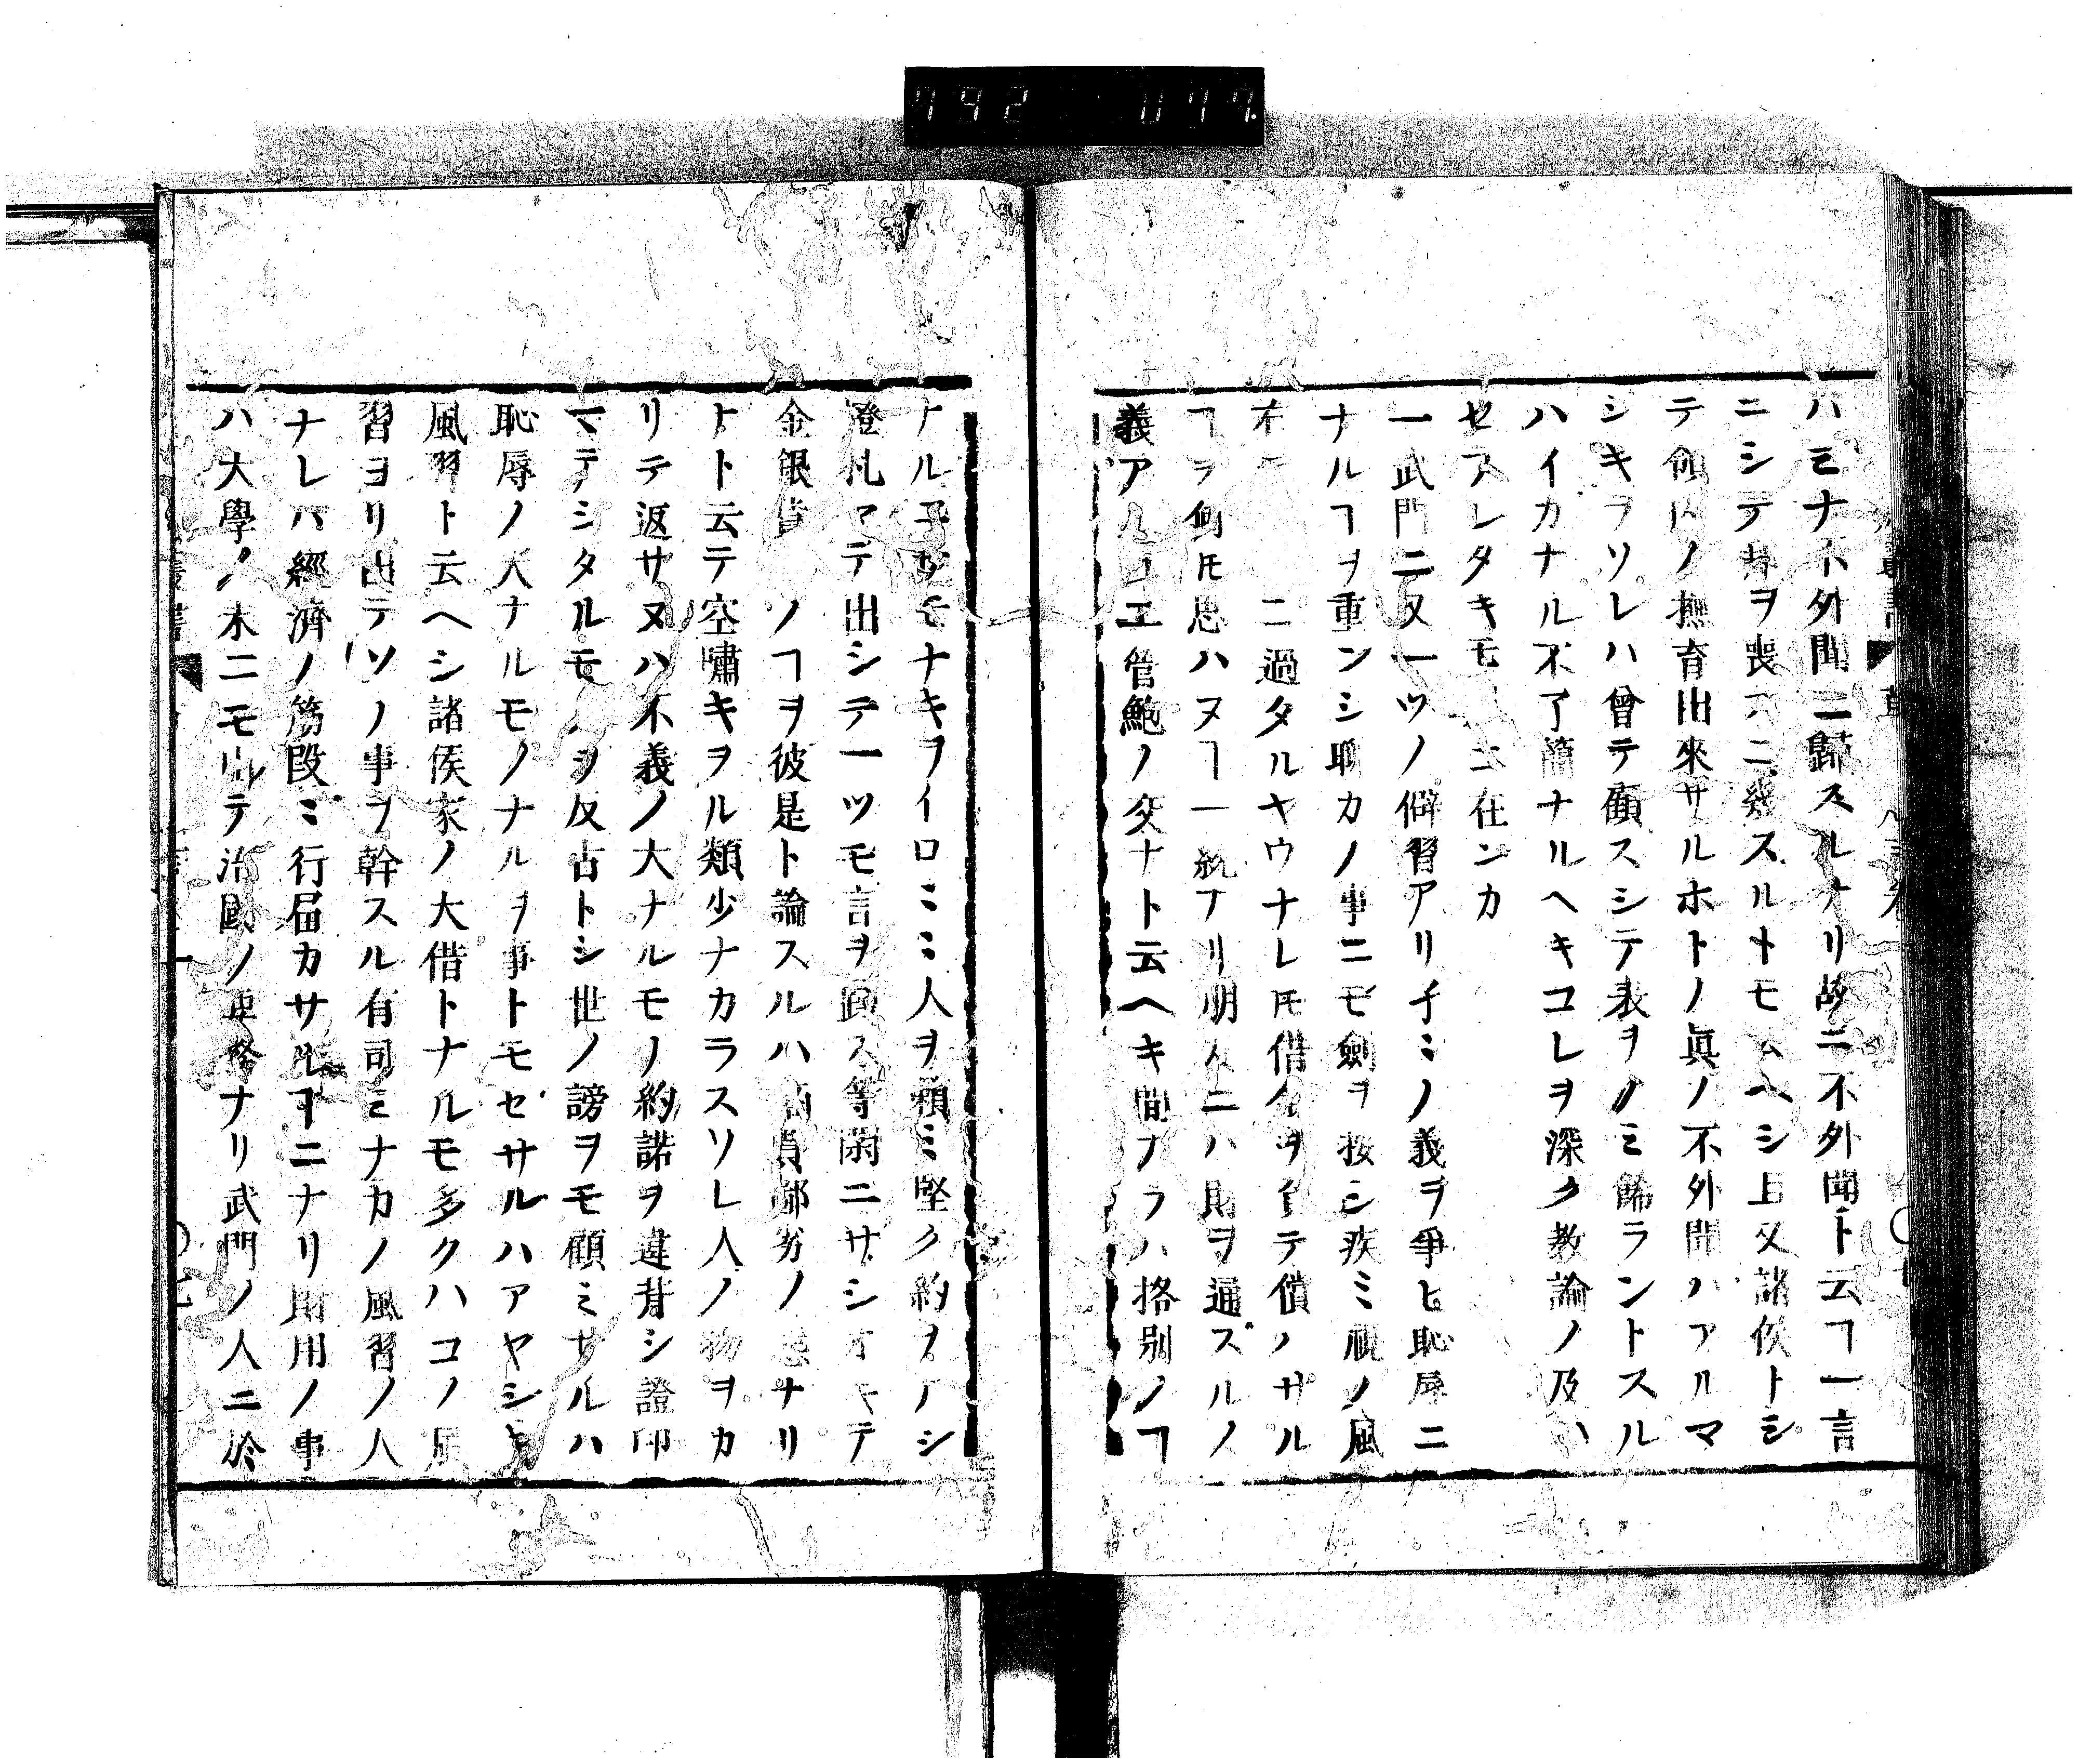 ハミナ外聞ニ歸スルナリ故ニ不外聞ト云ヿ一言
ニシテ ヲ喪 ニ幾スルトモ云ヘシ且又諸侯トシ
テ領内ノ撫育出來サルホトノ眞ノ不外聞ハアルマ
シキヲソレハ曾テ顧スシテ表ヲノミ餙ラントスル
ハイカナル不了簡ナルヘキコレヲ深ク教諭ノ及ハ
セラレタキモ ニ在ンカ
一武門ニ又一ツノ僻習アリ ミノ義ヲ爭ヒ恥辱ニ
ナルヿヲ重ンシ聊カノ事ニモ劍ヲ按シ疾ミ視ノ風
ニ過タルヤウナレ𪜈借金ヲイテ償ノサル
ヿヲ何𪜈思ハヌヿ一統ナリ朋友ニハ財ヲ通スルノ
義アルユエ管鮑ノ交ナト云ヘキ間ナラハ格別ノヿ
ナル モナキヲイロミミ人ヲ頼ミ堅ク約ヲナシ
證札マテ出シテ一ツモ言ヲ 等閑ニサシオキテ
金銀貸 ノヿヲ彼是ト論スルハ 鄙劣ノ ナリ
ト云テ空嘯キヲル類少ナカラスソレ人ノ物ヲカ
リテ返サヌハ不義ノ大ナルモノ約諾ヲ違背シ證印
マテシタルモノヲ反古トシ世ノ謗ヲモ顧ミサルハ
恥辱ノ大ナルモノナルヲ事トモセサルハアヤシキ
風習ト云ヘシ諸侯家ノ大借トナルモ多クハコノ風
習ヨリ出テソノ事ヲ幹スル有司ミナカノ風習ノ人
ナレハ經濟ノ筋段ミ行届カサルヿニナリ財用ノ事
ハ大學ノ末ニモ出テ治國ノ要務ナリ武門ノ人ニ於